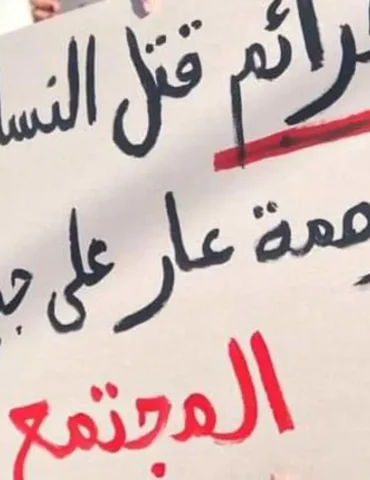 جرائم قتل النسا
وصمة عار على جب
المجتمع